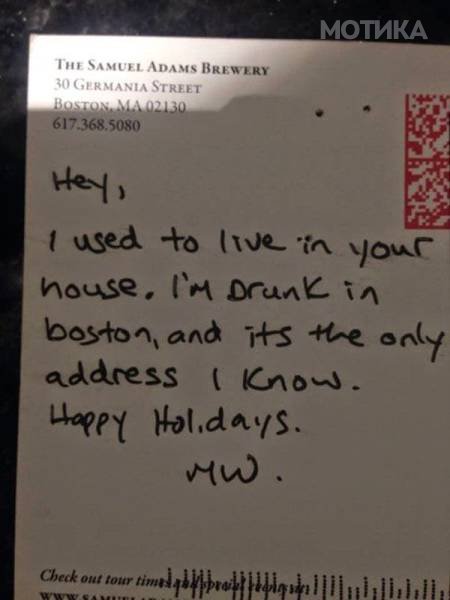 МОТИКА
THE SAMUEL ADAMS BREWERY
30 GERMANIA STREET
BOSTON, MA 02130
617.368.5080
Hey,
I used to live in your
house. I'm Drunk in
boston, and its the only
address I Know.
Happy Holidays.
MW.
Check out tour times and special events at